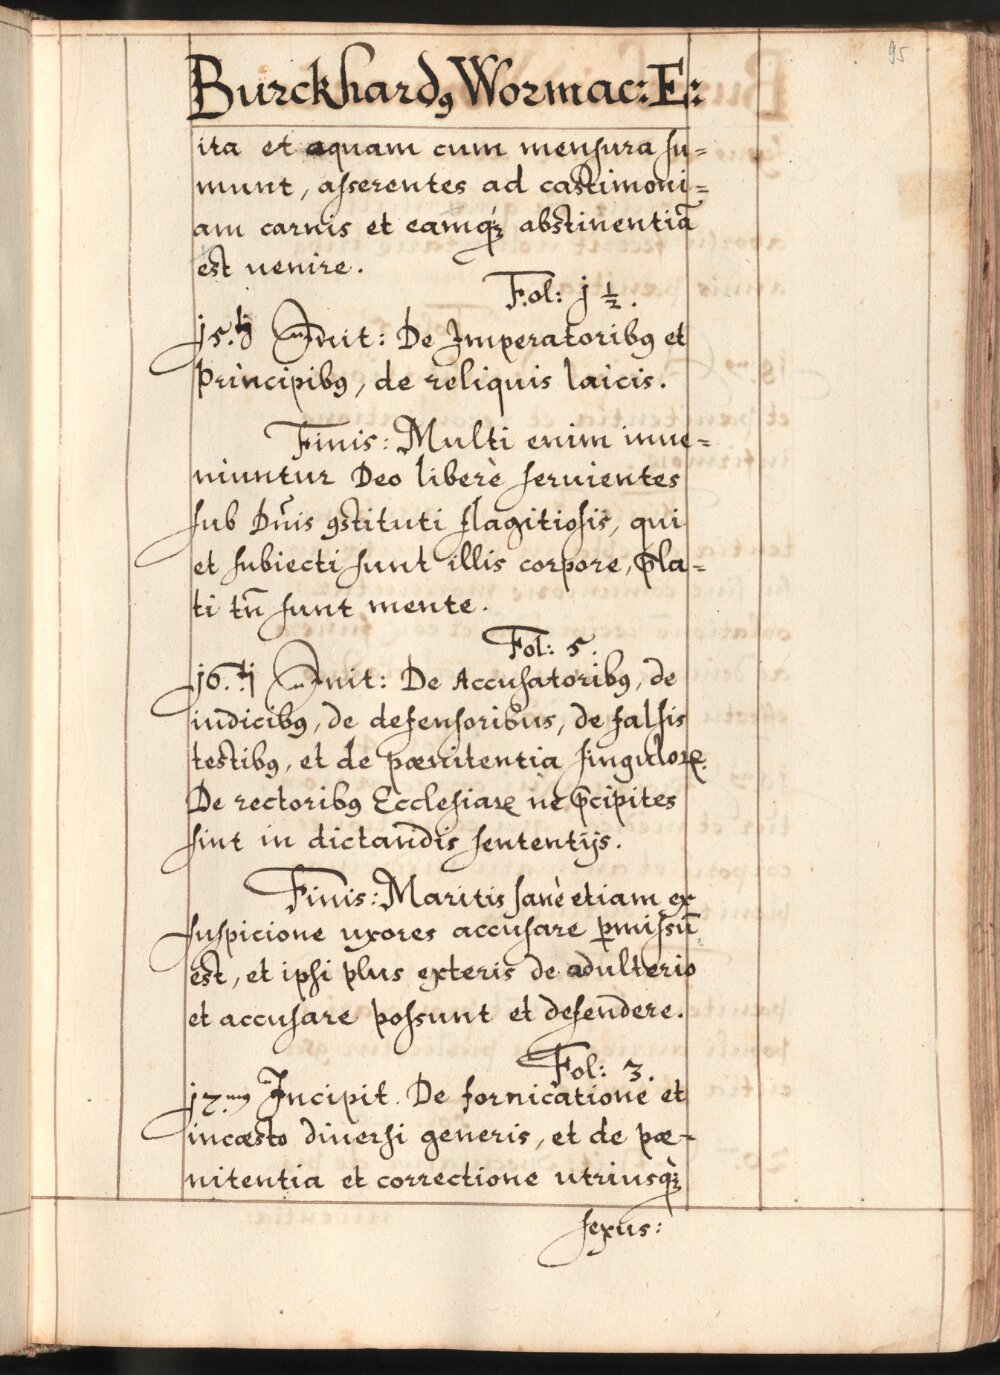 95
Burckhardꝰ Wormac: E:
ita et aquam cum mensura su=
munt, asserentes ad castimoni=
am carnis et eamqꝫ abstinentiā
est uenire.
Fol: j ½.
j5.ti Init: De Imperatoribꝰ et
Principibꝰ, de reliquis laicis.
Finis: Multi enim inue=
niuntur Deo liberè seruientes
sub Dn̄is ꝯstituti flagitiosis, qui
et subiecti sunt illis corpore, p̄la=
ti tn̄ sunt mente.
Fol: 5.
j6.ti Init: De Accusatoribꝰ, de
iudicibꝰ, de defensoribus, de falsis
testibꝰ, et de pœnitentia singuloꝝ.
De rectoribꝰ Ecclesiaꝝ ne p̄cipites
sint in dictandis sententijs.
Finis: Maritis sanè etiam ex
suspicione uxores accusare ꝑmissū
est, et ipsi plus exteris de adulterio
et accusare possunt et defendere.
Fol: 3.
j7.mꝰ Incipit. De fornicatione et
incæsto diuersi generis, et de pœ-
nitentia et correctione utriusqꝫ
sexus: